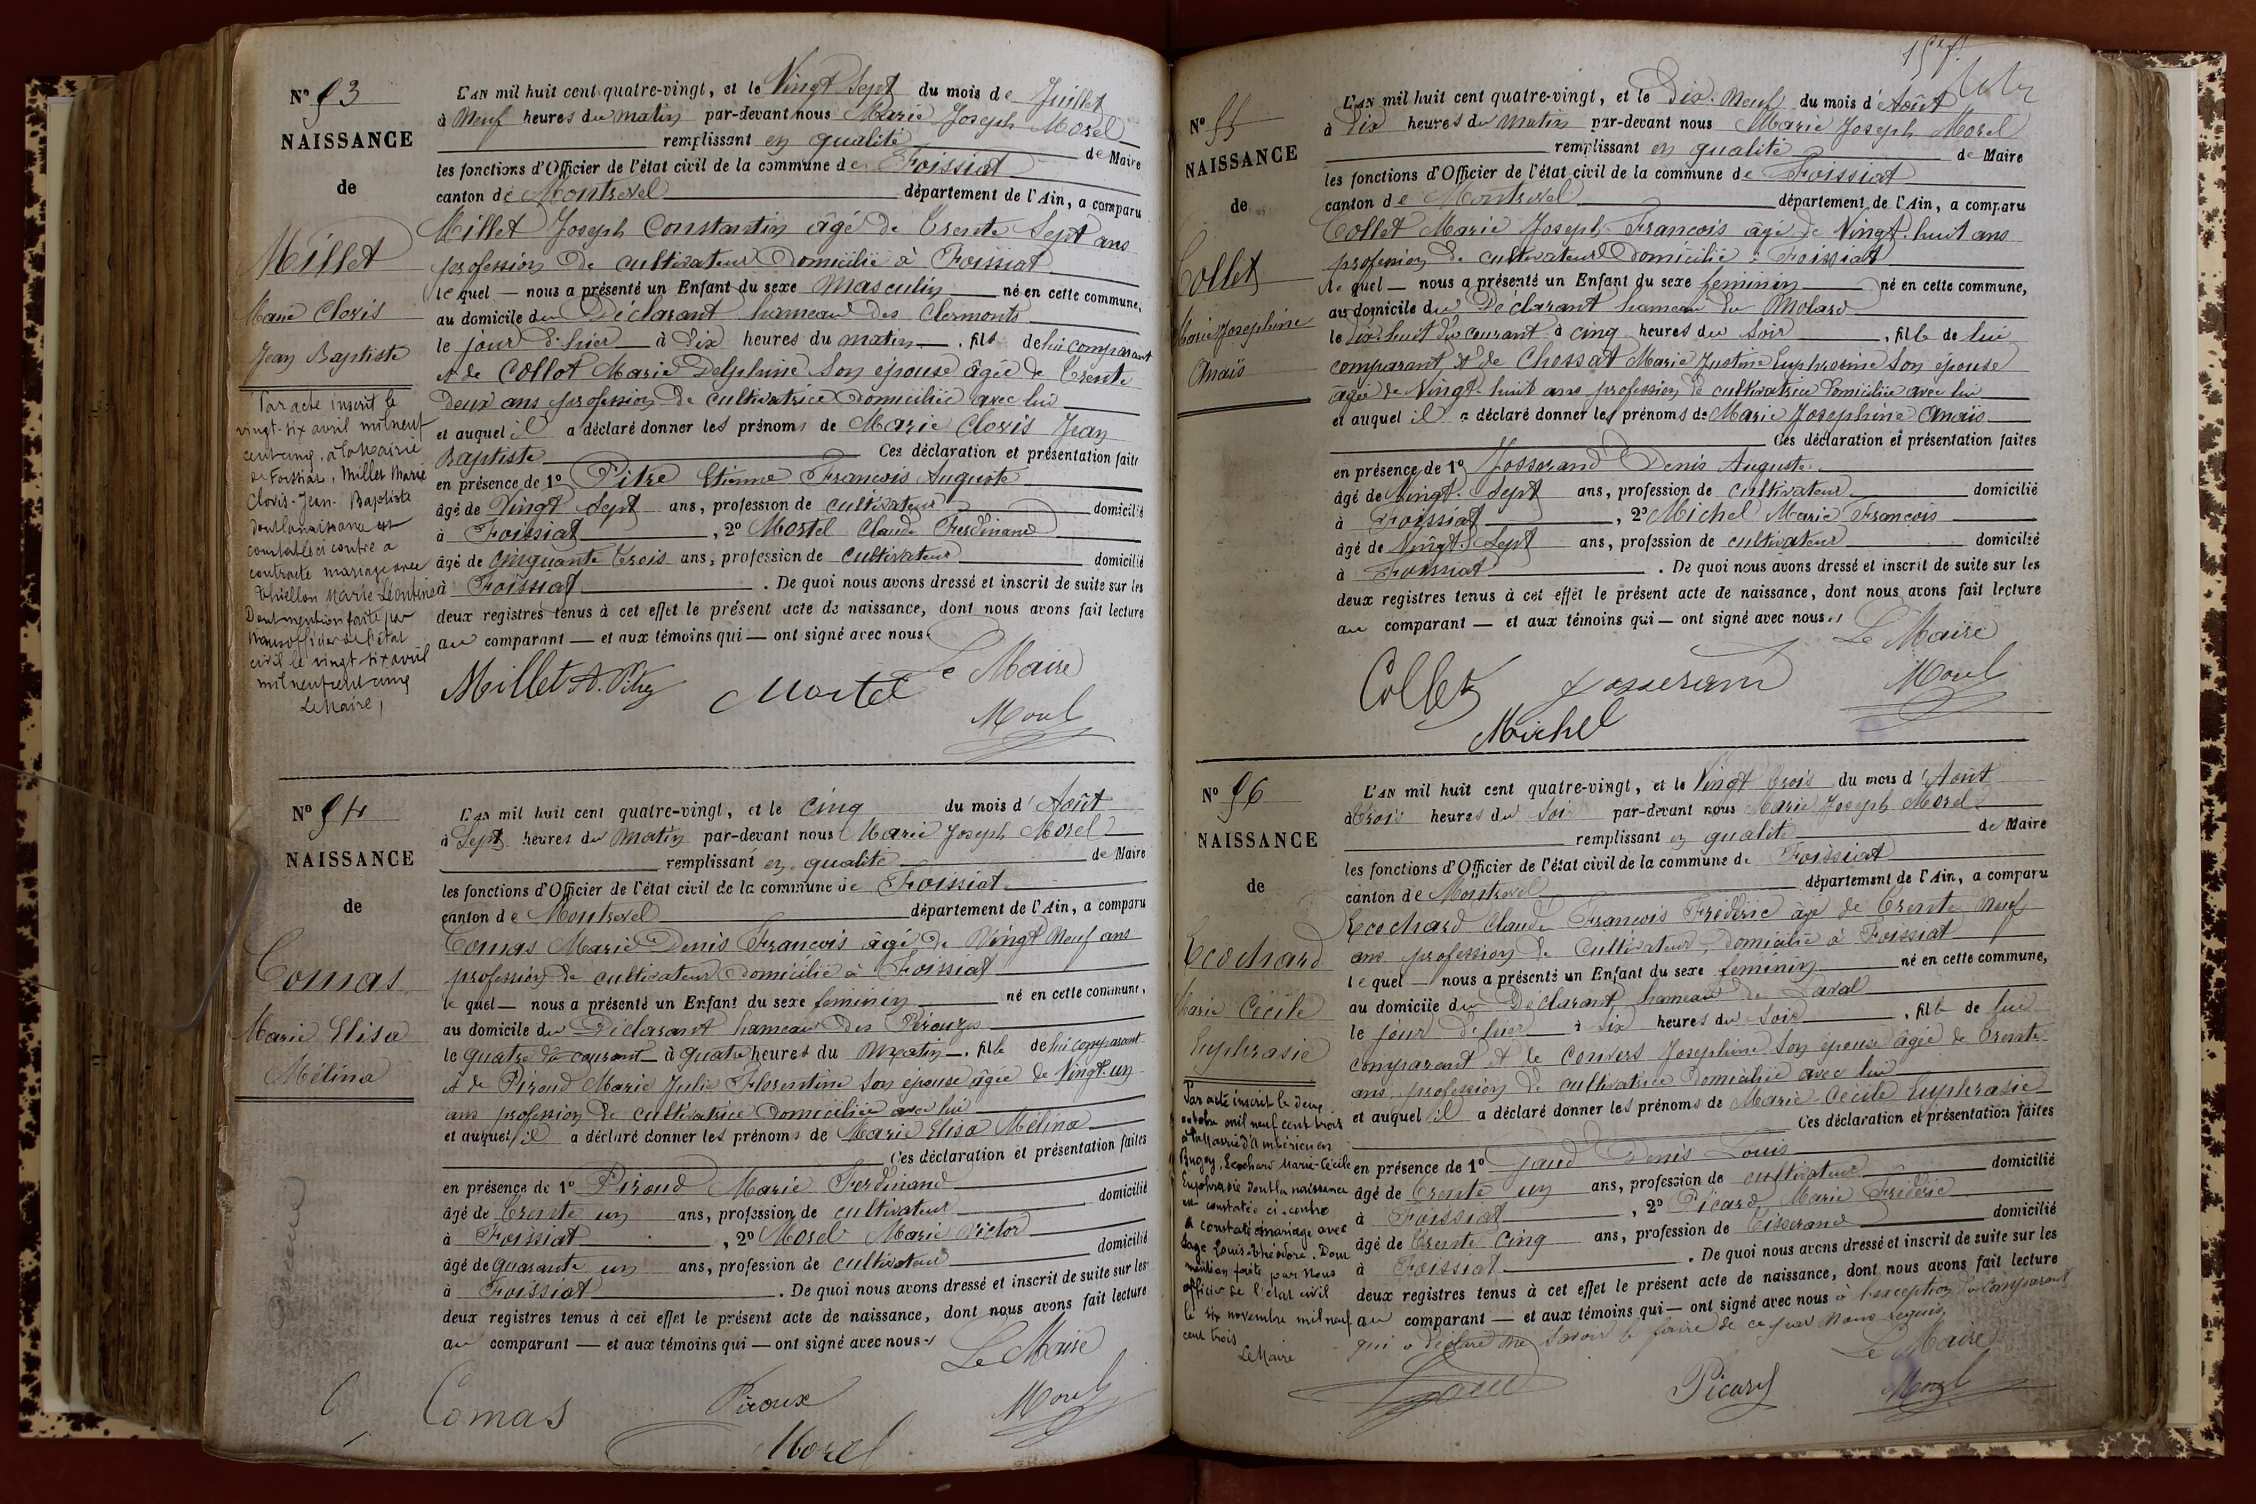 N° 93
NAISSANCE
de
Millet
Marie Clovis
Jean Baptiste
Par acte inscrit le
vingt-six avril mil neuf
cent cinq, à la Mairie
de Foissiat, Millet Marie
Clovis-Jean-Baptiste
dont la naissance est
constatée ci contre a
contracté mariage avec
Thiellon Marie Léontine
Dont mention faite par
nous officier de l'état
civil le vingt-six avril
mil neuf cent cinq
Le Maire,
L'AN mil huit cent quatre-vingt, et le Vingt Sept du mois de Juillet
à Neuf heures du matin par-devant nous Marie Joseph Morel
remplissant en qualité de Maire
les fonctions d'Officier de l'état civil de la commune de Foissiat
canton de Montrevel département de l'Ain, a comparu
Millet Joseph Constantin âgé de Trente Sept ans
profession de cultivateur domicilié à Foissiat
lequel — nous a présenté un Enfant du sexe Masculin né en cette commune,
au domicile du Déclarant hameau des Clermonts
le jour d'hier à Dix heures du matin, fils de lui comparant
et de Collot Marie Delphine son épouse âgée de Trente
Deux ans profession de cultivatrice domiciliée avec lui
et auquel il a déclaré donner les prénoms de Marie Clovis Jean
Baptiste Ces déclaration et présentation faites
en présence de 1° Pitre Etienne François Auguste
âgé de Vingt Sept ans, profession de cultivateur domicilié
à Foissiat, 2° Mortel Claude Ferdinand
âgé de Cinquante Trois ans, profession de cultivateur domicilié
à Foissiat. De quoi nous avons dressé et inscrit de suite sur les
deux registres tenus à cet effet le présent acte de naissance, dont nous avons fait lecture
au comparant — et aux témoins qui — ont signé avec nous.
Le Maire
Millet
Mortel
Morel
N° 94
NAISSANCE
de
Comas
Marie Elisa
Mélina
L'AN mil huit cent quatre-vingt, et le Cinq du mois d'Août
à Sept heures du Matin par-devant nous Marie Joseph Morel
remplissant en qualité de Maire
les fonctions d'Officier de l'état civil de la commune de Foissiat
canton de Montrevel département de l'Ain, a comparu
Comas Marie Denis François âgé de Vingt Neuf ans
profession de cultivateur domicilié à Foissiat
lequel — nous a présenté un Enfant du sexe féminin né en cette commune,
au domicile du Déclarant hameau des
le quatre du courant à quatre heures du Matin, fille de lui comparant
et de Piroud Marie Julie Florentine son épouse âgée de Vingt-un
ans profession de cultivatrice domiciliée avec lui
et auquel il a déclaré donner les prénoms de Marie Elisa Mélina
Ces déclaration et présentation faites
en présence de 1° Piroud Marie Ferdinand
âgé de Trente un ans, profession de cultivateur domicilié
à Foissiat, 2° Morel Marie Victor
âgé de quarante un ans, profession de cultivateur domicilié
à Foissiat. De quoi nous avons dressé et inscrit de suite sur les
deux registres tenus à cet effet le présent acte de naissance, dont nous avons fait lecture
au comparant — et aux témoins qui — ont signé avec nous.
Le Maire
Comas
Piroux
Morel
Morel
N° 95
NAISSANCE
de
Collet
Marie Josephine
Anaïs
L'AN mil huit cent quatre-vingt, et le Dix-Neuf du mois d'Août
à Dix heures du Matin par-devant nous Marie Joseph Morel
remplissant en qualité de Maire
les fonctions d'Officier de l'état civil de la commune de Foissiat
canton de Montrevel département de l'Ain, a comparu
Collet Marie Joseph François âgé de Vingt-huit ans
profession de cultivateur domicilié à Foissiat
lequel — nous a présenté un Enfant du sexe féminin né en cette commune,
au domicile du Déclarant hameau du Molard
le Dix-huit du courant à cinq heures du Soir, fille de lui
comparant et de Chossat Marie Justine Euphrosine son épouse
âgée de Vingt-huit ans profession de cultivatrice domiciliée avec lui
et auquel il a déclaré donner les prénoms de Marie Josephine Anaïs
Ces déclaration et présentation faites
en présence de 1° Josserand Denis Auguste
âgé de Vingt-Sept ans, profession de cultivateur domicilié
à Foissiat, 2° Michel Marie François
âgé de Vingt-Sept ans, profession de cultivateur domicilié
à Foissiat. De quoi nous avons dressé et inscrit de suite sur les
deux registres tenus à cet effet le présent acte de naissance, dont nous avons fait lecture
au comparant — et aux témoins qui — ont signé avec nous.
Le Maire
Collet
Josserand
Morel
Michel
N° 96
NAISSANCE
de
Ecochard
Marie Cécile
Euphrasie
Par acte inscrit le deux
octobre mil neuf cent trois
à la Mairie d'Ambérieu en
Bugey, Ecochard Marie-Cécile
Euphrasie dont la naissance
est constatée ci-contre
a contracté mariage avec
Sage Louis-Théodore. Dont
mention faite par Nous
officier de l'état civil
le six novembre mil neuf
cent trois
Le Maire
L'AN mil huit cent quatre-vingt, et le Vingt Trois du mois d'Août
à Trois heures du Soir par-devant nous Marie Joseph Morel
remplissant en qualité de Maire
les fonctions d'Officier de l'état civil de la commune de Foissiat
canton de Montrevel département de l'Ain, a comparu
Ecochard Claude François Fréderic âgé de Trente Neuf
ans profession de Cultivateur, domicilié à Foissiat
lequel — nous a présenté un Enfant du sexe féminin né en cette commune,
au domicile du Déclarant, hameau de Laval
le jour d'hier à six heures du Soir, fille de lui
comparant et de Convers Josephine son épouse âgée de Trente
ans profession de cultivatrice domiciliée avec lui
et auquel il a déclaré donner les prénoms de Marie Cécile Euphrasie
Ces déclaration et présentation faites
en présence de 1° Gaud Denis Louis
âgé de Trente un ans, profession de cultivateur domicilié
à Foissiat, 2° Picard Marie Fréderic
âgé de Trente Cinq ans, profession de Tisserand domicilié
à Foissiat. De quoi nous avons dressé et inscrit de suite sur les
deux registres tenus à cet effet le présent acte de naissance, dont nous avons fait lecture
au comparant — et aux témoins qui — ont signé avec nous à l'exception du comparant
qui a déclaré ne savoir le faire de ce par nous requis.
Le Maire
Gaud
Picard
Morel